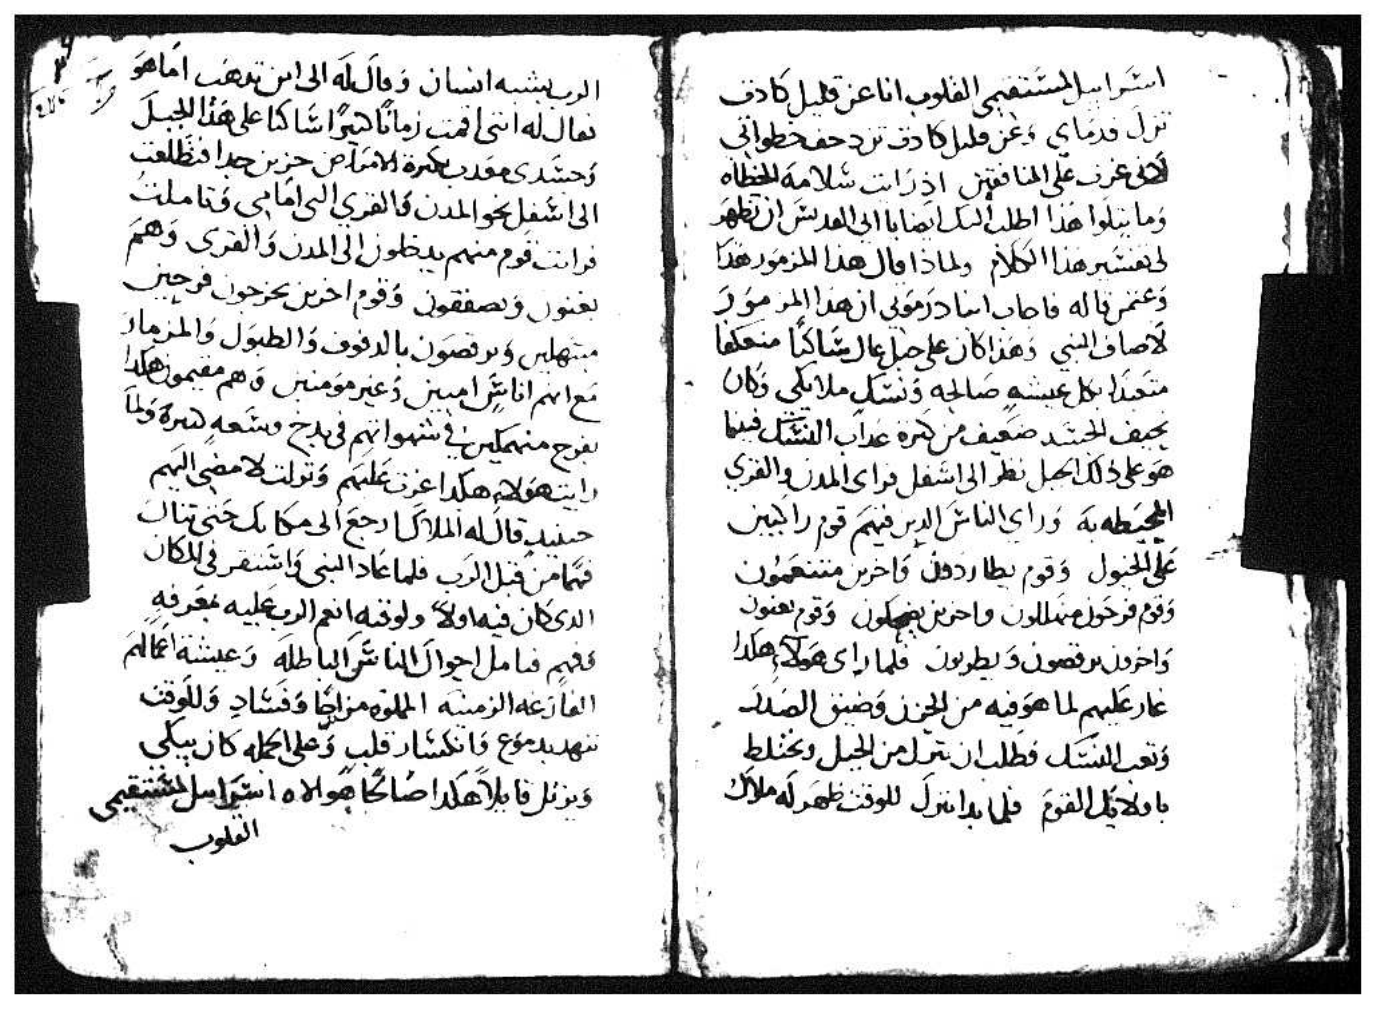 اسراييل المستقيمي القلوب انا عن قليل كادت
تزل قدماي وعن قليل كادت تزحف خطواتي
لاني غرت على المنافقين اذ رايت سلامة الخطاه
وما يتلوا هذا اطلب اليك ايضا يا ابي القديس ان تظهر
لي تفسير هذا الكلام ولماذا قال هذا المزمور هكذا
وعن من قاله فاجاب انبا دزموني ان هذا المزمور
لاصاف النبي وهذا كان على جبل عال ساكنا منعكفا
متعبدا بكل عيشه صالحه ونسك ملايكي وكان
نحيف الجسد ضعيف من كثرة عذاب النسك فبينما
هو على ذلك الجبل نظر الى اسفل فراى المدن والقري
المحيطه به وراى الناس الدين فيهم قوم راكبين
على الخيول وقوم يطاردون واخرين متنعمون
وقوم فرحون متهللون واخرين يضحكون وقوم يغنون
واخرون يرقصون ويطربون فلما راى هولاء هكدا
غار عليهم لما هو فيه من الحزن وضيق الصدر
وتعب النسك وطلب ان ينزل من الجبل ويختلط
باولايك القوم فلما بدا ينزل للوقت ظهر له ملاك
الرب بشبه انسان وقال له الى اين تدهب اما هو
فقال له انني اقمت زمانا كثيرا ساكنا على هذا الجبل
وجسدي معدب بكثرة الامراض حزين جدا فتطلعت
الى اسفل نحو المدن والقري التي امامي وتاملت
فرايت قوم منهم يدخلون الى المدن والقرى وهم
يغنون ويصفقون وقوم اخرين يخرجون فرحين
متهللين ويرقصون بالدفوف والطبول والمزمار
مع انهم اناس اميين وغير مومنين وهم مقيمون هكدا
بفرح منهمكين في شهواتهم في بدخ وسعه كثيرة ولما
رايت هولاء هكدا غرت عليهم ونزلت لامضي اليهم
حينيد قال له الملاك ارجع الى مكانك حتى تنال
فهما من قبل الرب فلما عاد النبي واستقر في المكان
الدي كان فيه اولا ولوقته انعم الرب عليه بمعرفه
وفهم فتامل احوال الناس الباطله وعيشة اعمالهم
الفارغه الزمنيه المملوه مزاحا وفساد وللوقت
تنهد بدموع وانكسار قلب وعلى الجمله كان يبكي
ويرتل قايلا هكدا صالحا هو الاه اسراييل للمستقيمي
القلوب